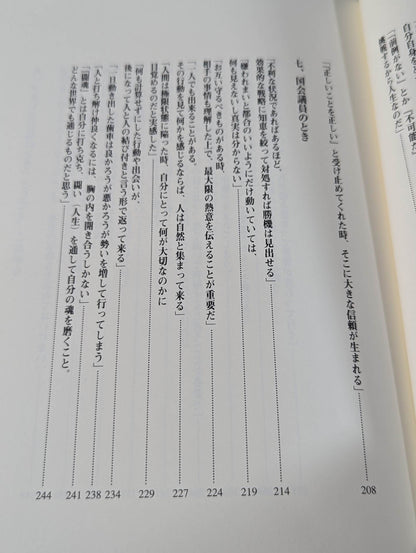 自分自身を
「『前例がない』とか『不可能だ
遭遇するから人生なのだ」
「『正しいことを正しい』と受け止めてくれた時、そこに大きな信頼が生まれる」 208
七、国会議員のとき
「不利な状況であればあるほど、
効果的な戦略に知恵を絞って対処すれば勝機は見出せる」 214
「嫌われまいと都合のいいようにだけ動いていては、
何も見えないし真実は分からない」 219
「お互い守るべきものがある時、
相手の事情も理解した上で、最大限の熱意を伝えることが重要だ」 224
「一人でも出来ることがある、
その行動を見て何かを感じるならば、人は自然と集まって来る」 227
「人間は極限状態に陥った時、自分にとって何が大切なのかに
目覚めるのだと実感した」 229
「何も計算せずにした行動や出会いが、
後になって人と人の結び付きと言う形で返って来る」 234
「一旦動き出した歯車は良かろうが悪かろうが勢いを増して行ってしまう」 238
「人と打ち解け仲良くなるには、胸の内を開き合うしかない」 241
「『闘魂』とは自分に打ち克ち、闘い（人生）を通して自分の魂を磨くこと。
どんな世界でも通じるものだと思う」 244